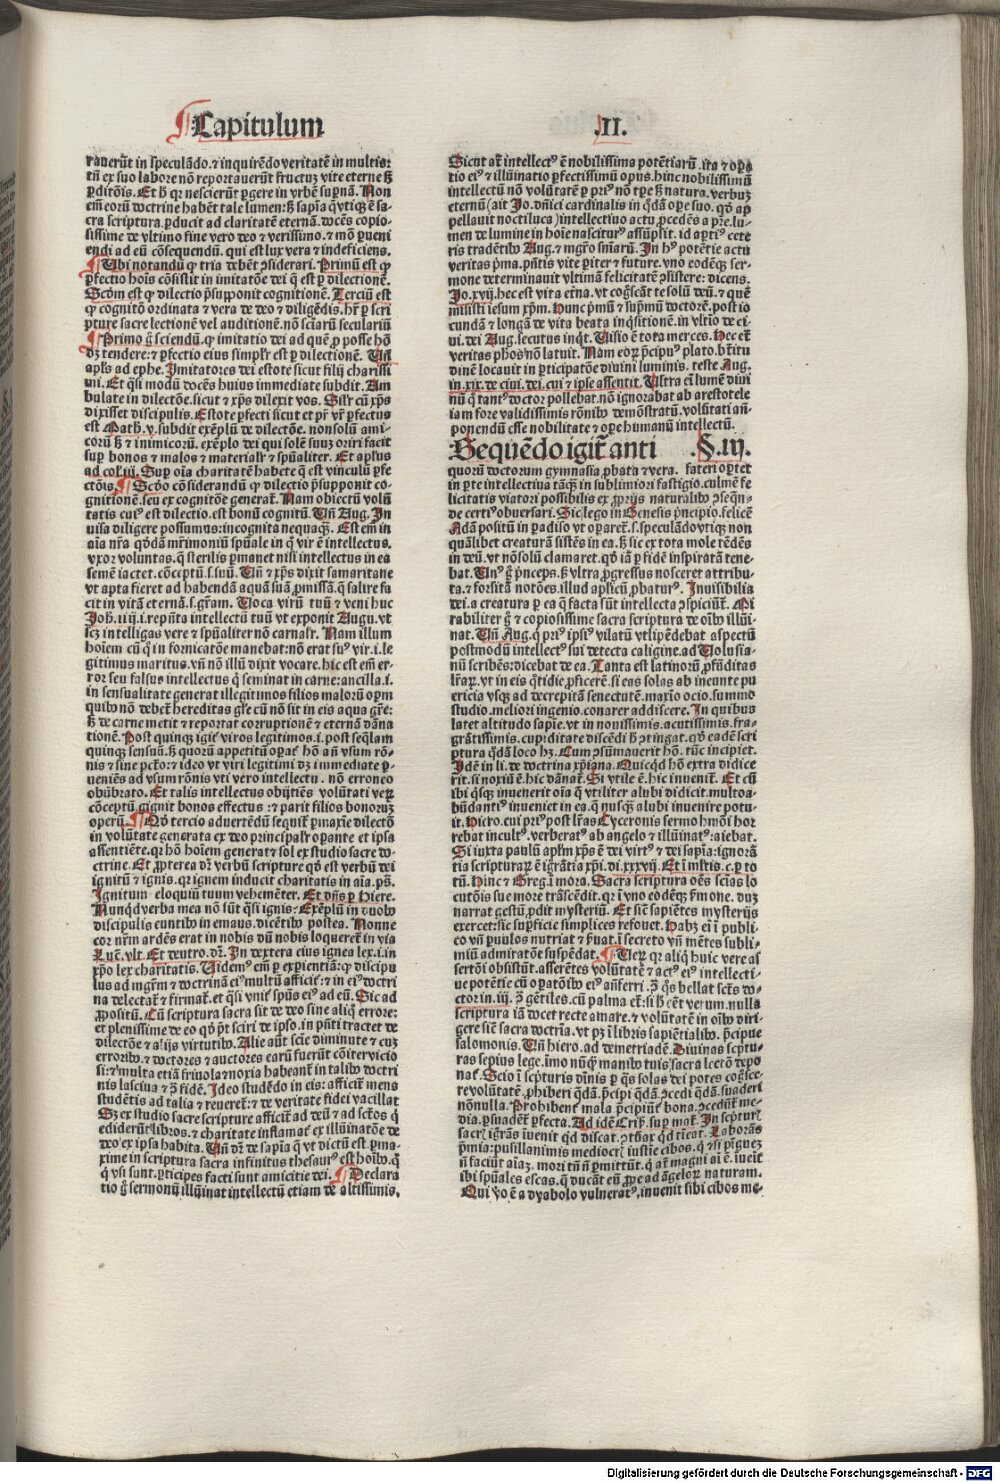 Capitulum .II.
rauerūt in speculādo. ⁊ inquirēdo veritatē in multis:
tn̄ ex suo labore nō reportauerūt fructuꝫ vite eterne sꝫ
ꝑditōis. Et h̄ qꝛ nescierūt ꝑgere in vrbē suꝑnā. Non
em̄ eoꝝ doctrine habēt tale lumen: sꝫ sapīa q̄ vtiqꝫ ē sa-
cra scriptura. ꝑducit ad claritatē eternā. docēs copio-
sissime de vltimo fine vero deo ⁊ verissimo. ⁊ mō ꝑueni
endi ad eū cōsequendū. qui est lux vera ⁊ indeficiens.
Ubi notandū ꝙ tria debēt ꝯsiderari. Primū est ꝙ
ꝑfectio hoīs cōsistit in imitatōe dei q̄ est ꝑ dilectionē.
Scd̄m est ꝙ dilectio p̄supponit cognitionē. Terciū est
ꝙ cognitō ordinata ⁊ vera de deo ⁊ diligēdis. hr̄ ꝑ scri
pture sacre lectionē vel auditionē. nō sciarū seculariū
Primo g̊ sciendū. ꝙ imitatio dei ad quē ꝓ posse hō
dꝫ tendere: ⁊ ꝑfectio eius simplr̄ est ꝑ dilectionē. Un̄
apl̄s ad ephe. Imitatores dei estote sicut filij charissi
mi. Et q̄si modū docēs huius immediate subdit. Am
bulate in dilectōe. sicut ⁊ xp̄s dilexit vos. Silr̄ cū xp̄s
dixisset discipulis. Estote ꝑfecti sicut et pr̄ vr̄ ꝑfectus
est Math. v. subdit exēplū de dilectōe. nonsolū ami
corū sꝫ ⁊ inimicorū. exēplo dei qui solē suuꝫ oriri facit
suꝑ bonos ⁊ malos ⁊ materialr̄ ⁊ spūaliter. Et apl̄us
ad col. iij. Suꝑ oīa charitatē habete q̄ est vinculū ꝑfe
ctōis. Scd̄o cōsiderandū ꝙ dilectio p̄supponit co-
gnitionē. seu ex cognitōe generat̄. Nam obiectū volū
tatis cuiꝰ est dilectio. est bonū cognitū. Un̄ Aug. In
visa diligere possumus: incognita nequaqꝫ. Est em̄ in
aīa nr̄a qd̄dā mr̄imoniū spūale in q̊ vir ē intellectus.
vxor voluntas. q̄ sterilis ꝑmanet nisi intellectus in ea
semē iactet. cōceptū. s. suū. Un̄ ⁊ xp̄s dixit samaritane
vt apta fieret ad habendā aquā suā ꝓmissā. q̄ salire fa
cit in vitā eternā. s. gr̄am. Uoca virū tuū ⁊ veni huc
Joh. iiij. i. repn̄ta intellectū tuū vt exponit Augu. vt
scꝫ intelligas vere ⁊ spūaliter nō carnalr̄. Nam illum
hoīem cū q̊ in fornicatōe manebat: nō erat suꝰ vir. i. le
gitimus maritus. vn̄ nō illū dixit vocare. hic est em̄ er-
ror seu falsus intellectus q̄ seminat in carne: ancilla. i.
in sensualitate generat illegitimos filios malorū oꝑm
quibꝰ nō debet̄ hereditas gl̄e cū nō sit in eis aqua gr̄e:
sꝫ de carne metit ⁊ reportat corruptionē ⁊ eternā dāna
tionē. Post quinqꝫ igit̄ viros legitimos. i. post seq̄lam
quinqꝫ sensuū. sꝫ quorū appetitū oꝑat̄ hō an̄ vsum rō-
nis ⁊ sine pctō: ⁊ ideo vt viri legitimi dꝫ immediate ꝑ-
ueniēs ad vsum rōnis vti vero intellectu . nō erroneo
obūbrato. Et talis intellectus obijciēs volūtati verꝫ
cōceptū gignit bonos effectus : ⁊ parit filios bonoruꝫ
operū. Qd̄ tercio aduertēdū sequit̄ ꝙ maxīe dilectō
in volūtate generata ex deo principalr̄ oꝑante et ipsa
assentiēte. qꝛ hō hoīem generat ⁊ sol ex studio sacre do-
ctrine. Et ꝓpterea dr̄ verbū scripture qd̄ est verbū dei
ignitū ⁊ ignis. qꝛ ignem inducit charitatis in aīa. ps̄.
Ignitum eloquiū tuum vehemēter. Et dn̄s ꝑ Hiere.
Nunqd̄ verba mea nō sūt q̄si ignis: Exēplū in duobꝰ
discipulis euntibꝰ in emaus. dicētibꝰ postea. Nonne
cor nr̄m ardēs erat in nobis dū nobis loqueret̄ in via
Luc̄. vlt. Et deutro. dr̄. In dextera eius ignea lex. i. in
xp̄o lex charitatis. Uidemꝰ em̄ ꝑ experientiā: ꝙ discipu
lus ad mgr̄m ⁊ doctrinā eiꝰ multū afficit̄: ⁊ in eiꝰ doctri
na delectat̄ ⁊ firmat̄. et q̄si vnit̄ spūs eiꝰ ad eū. Sic ad
ꝓpositū. Cū scriptura sacra sit de deo sine aliq̊ errore:
et plenissime de eo qd̄ pt̄ sciri de ipso. in pn̄ti tractet de
dilectōe ⁊ alijs virtutibꝰ. Alie aūt scīe diminute ⁊ cuꝫ
erroribꝰ. ⁊ doctores ⁊ auctores earū fuerūt cōiter vicio
si: ⁊ multa etiā friuola ⁊ noxia habeant̄ in talibꝰ doctri
nis lasciua ⁊ ꝯ̄ fidē. Ideo studēdo in eis: afficit̄ mens
studētis ad talia ⁊ reueret̄: ⁊ de veritate fidei vacillat
Sꝫ ex studio sacre scripture afficit̄ ad deū ⁊ ad sctōs q̄
ediderūt libros. ⁊ charitate inflamat̄ ex illūinatōe de
deo ex ipsa habita. Un̄ dr̄ de sapīa q̄ vt dictū est ꝑma-
xime in scriptura sacra infinitus thesaurꝰ est hoībꝰ. q̊
q̄ vsi sunt. ꝑticipes facti sunt amicitie dei. Declara
tio g̊ sermonū illūinat intellectū etiam de altissimis.
Sicut at̄ intellectꝰ ē nobilissima potētiarū. ita ⁊ oꝑa
tio eiꝰ ⁊ illūinatio ꝑfectissimū opus. hinc nobilissimū
intellectū nō volūtatē ꝑ priꝰ nō tꝑe sꝫ natura. verbuꝫ
eternū (ait Jo. dn̄ici cardinalis in q̊dā oꝑe suo. qd̄ ap
pellauit noctiluca) intellectiuo actu ꝓcedēs a pre. lu-
men de lumine in hoīe nasciturꝰ assūpsit. id aptiꝰ cete
ris tradētibꝰ Aug. ⁊ mgr̄o sniarū. In hꝰ potētie actu
veritas pma. pn̄tis vite ꝑiter ⁊ future. vno eodēqꝫ ser-
mone determinauit vltimā felicitatē ꝯsistere: dicens.
Jo. xvij. hec est vita et̄na. vt cog̊scāt te solū deū. ⁊ quē
misisti iesum xp̄m. Hunc pmū ⁊ supmū doctorē. post io
cundā ⁊ longā de vita beata inq̄sitionē. in vltīo de ci-
ui. dei Aug. secutus inq̄t. Uisio ē tota merces. Hec et̄
veritas phos nō latuit. Nam eoꝝ pcipuꝰ plato. btītu
dinē locauit in ꝑticipatōe diuini luminis. teste Aug.
in. xix. de ciui. dei. cui ⁊ ipse assentit. Ultra cū lumē diui
nū q̄ tantꝰ doctor pollebat. nō ignorabat ab arestotele
iam fore validissimis rōnibꝰ demōstratū. volūtati an̄-
ponendū esse nobilitate ⁊ oꝑe humanū intellectū.
Sequēdo igit̄ anti §. iij.
quorū doctorum gymnasia ꝓbata ⁊ vera. fateri oꝑtet
in ꝑte intellectiua tāqꝫ in sublimiori fastigio. culmē fe
licitatis viatori possibilis ex ꝓprijs naturalibꝰ ꝯseq̄n-
de certiꝰ obuersari. Sic lego in Genesis pncipio. felicē
Adā positū in padiso vt oꝑaret̄. s. speculādo vtiqꝫ non
quālibet creaturā sistēs in ea. sꝫ sic ex tota mole tēdēs
in deū. vt nōsolū clamaret. qd̄ iā ꝑ fidē inspiratā tene-
bat. Unꝰ g̊ pnceps. sꝫ vltra ꝓgressus nosceret attribu-
ta. ⁊ forsitā notōes. illud apl̄icū ꝓbaturꝰ. Inuisibilia
dei. a creatura ꝑ ea q̄ facta sūt intellecta ꝯspiciūt̄. Mi
rabiliter g̊ ⁊ copiosissime sacra scriptura de oībꝰ illūi-
nat. Un̄ Aug. q̄ priꝰ ipsiꝰ vilatū vtlipēdebat aspectū
postmodū intellectꝰ sui detecta caligine. ad Uolusia-
nū scribēs: dicebat de ea. Tanta est latinorū ꝓfūditas
lr̄aꝝ. vt in eis q̄tidie ꝓficerē. si eas solas ab ineunte pu
ericia vsqꝫ ad decrepitā senectutē. maxīo ocio. summo
studio. meliori ingenio. conarer addiscere. In quibus
latet altitudo sapīe. vt in nouissimis. acutissimis. fra-
grātissimis. cupiditate discēdi hꝫ ꝯtingat. qd̄ eadē scri
ptura q̊dā loco hꝫ. Cum ꝯsūmauerit hō. tūc incipiet.
Idē in li. de doctrina xp̄iana. Quicqd̄ hō extra didice
rit. si noxiū ē. hic dānat̄. Si vtile ē. hic inuenit̄. Et cū
ibi q̄sqꝫ inuenerit oīa q̄ vtiliter alubi didicit. multo a-
būdantiꝰ inueniet in ea. q̄ nusqꝫ alubi inuenire potu-
it. Hiero. cui priꝰ post lr̄as Cyceronis sermo hmōi hor
rebat incultꝰ. verberatꝰ ab angelo ⁊ illūinatꝰ: aiebat.
Si iuxta paulū apl̄m xp̄s ē dei virtꝰ ⁊ dei sapīa: ignorā
tia scripturaꝝ ē igrātia xpi. di. xxxvij. Et ī mltis. c. ꝑ to
tū. Hinc ⁊ Greg. ī mora. Sacra scriptura oēs scias lo
cutōis sue more trāscēdit. qꝛ ī vno eodēqꝫ ßmone. duꝫ
narrat gestū ꝓdit mysteriū. Et siē sapiētes mysterijs
exercet: sic suꝑficie simplices refouet. Habꝫ ei ī publi-
co vn̄ puulos nutriat ⁊ ßuat. ī secreto vn̄ mētes subli-
miū admiratōe suspēdat. Uerꝫ qꝛ aliq̄ huic vere as
sertōi obsistūt. asserētes volūtatē ⁊ actꝰ eiꝰ intellecti-
ue potētie cū oꝑatōibꝰ eiꝰ an̄ferri. ꝯ̄ q̊s bellat sct̄s do-
ctor in. iij. ꝯ̄ gētiles. cū palma et̄: si h̄ eēt verum. nulla
scriptura iā docet recte amare. ⁊ volūtatē in oībꝰ diri-
gere siē sacra doctrīa. vt pꝫ ī libris sapiētialibꝰ. pcipue
salomonis. Un̄ hiero. ad demetriadē. Diuinas scptu-
ras sepius lege. īmo nūq̄ manibꝰ tuis sacra lectō depo
nat̄. Scio ī scpturis diuinis ꝑ q̄s solas dei potes cog̊sce-
re volūtatē. ꝓhiberi q̄dā. pcipi q̄dā. ꝯcedi q̄dā. suaderi
nōnulla. Prohibent̄ mala. pcipiūt̄ bona. ꝯcedūt̄ me-
dia. ꝑsuadēt̄ ꝑfecta. Ad idē Criß. suꝑ mat̄. In scptur̄
sacr̄ igrās iuenit qd̄ discat. ꝯtūax qd̄ tīeat. Laborās
pmia: pusillanimis mediocr̄ iustīe cibos. q̄ ⁊ si pigueꝫ
nō faciūt aiaꝫ. mori tn̄ nō ꝑmittūt. q̄ at̄ magni aī ē. iueīt
ibi spūales escas. q̄ ducāt eū ꝓpe ad āgeloꝝ naturam.
Qui vo ē a dyabolo vulneratꝰ. inuenit sibi cibos me-
Digitalisierung gefördert durch die Deutsche Forschungsgemeinschaft - DFG